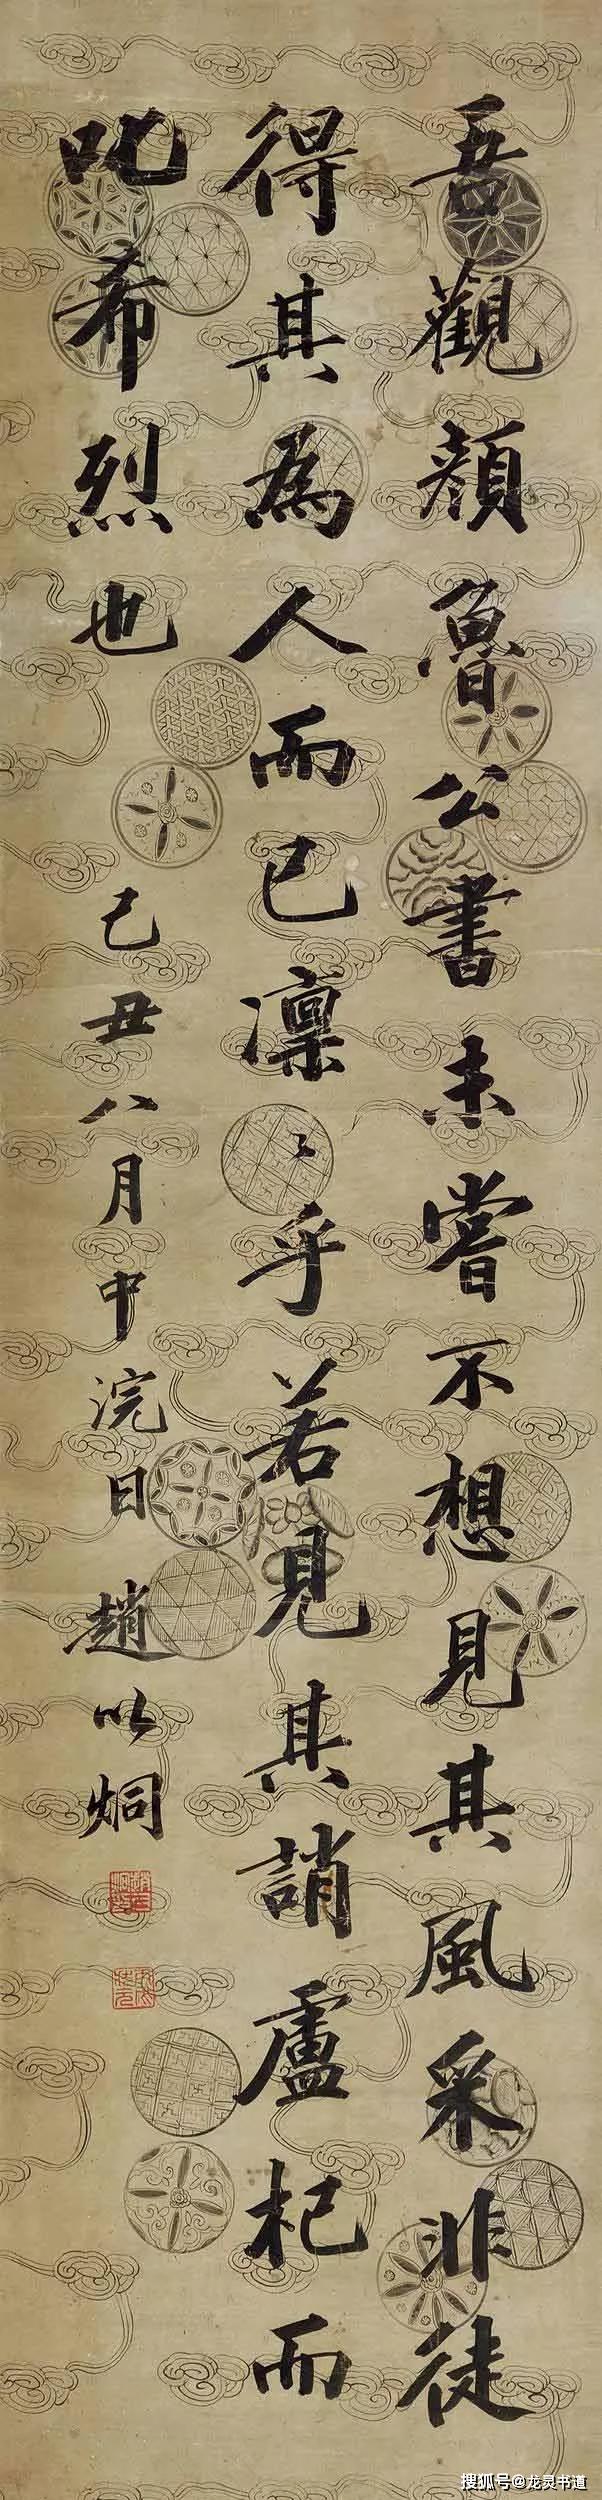 吾觀顏魯公書未嘗不想見其風采非徒
得其為人而已凜〻乎若見其誚盧杞而
叱希烈也
己丑八月中浣日趙以炯
搜狐号@龙灵书道